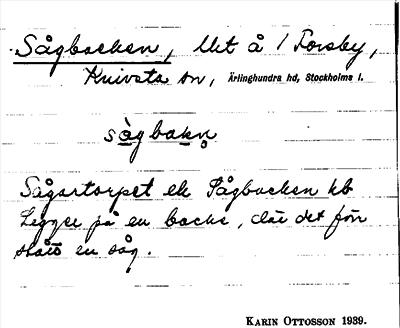 Sågbacken, Urt å 1 Forsby,
Knivsta sn, Ärlinghundra hd, Stockholms l.
sågbakn̥
Sågartorpet el. Sågbacken kb
Ligger på en backe, där det förr
stått en såg.
KARIN OTTOSSON 1939.